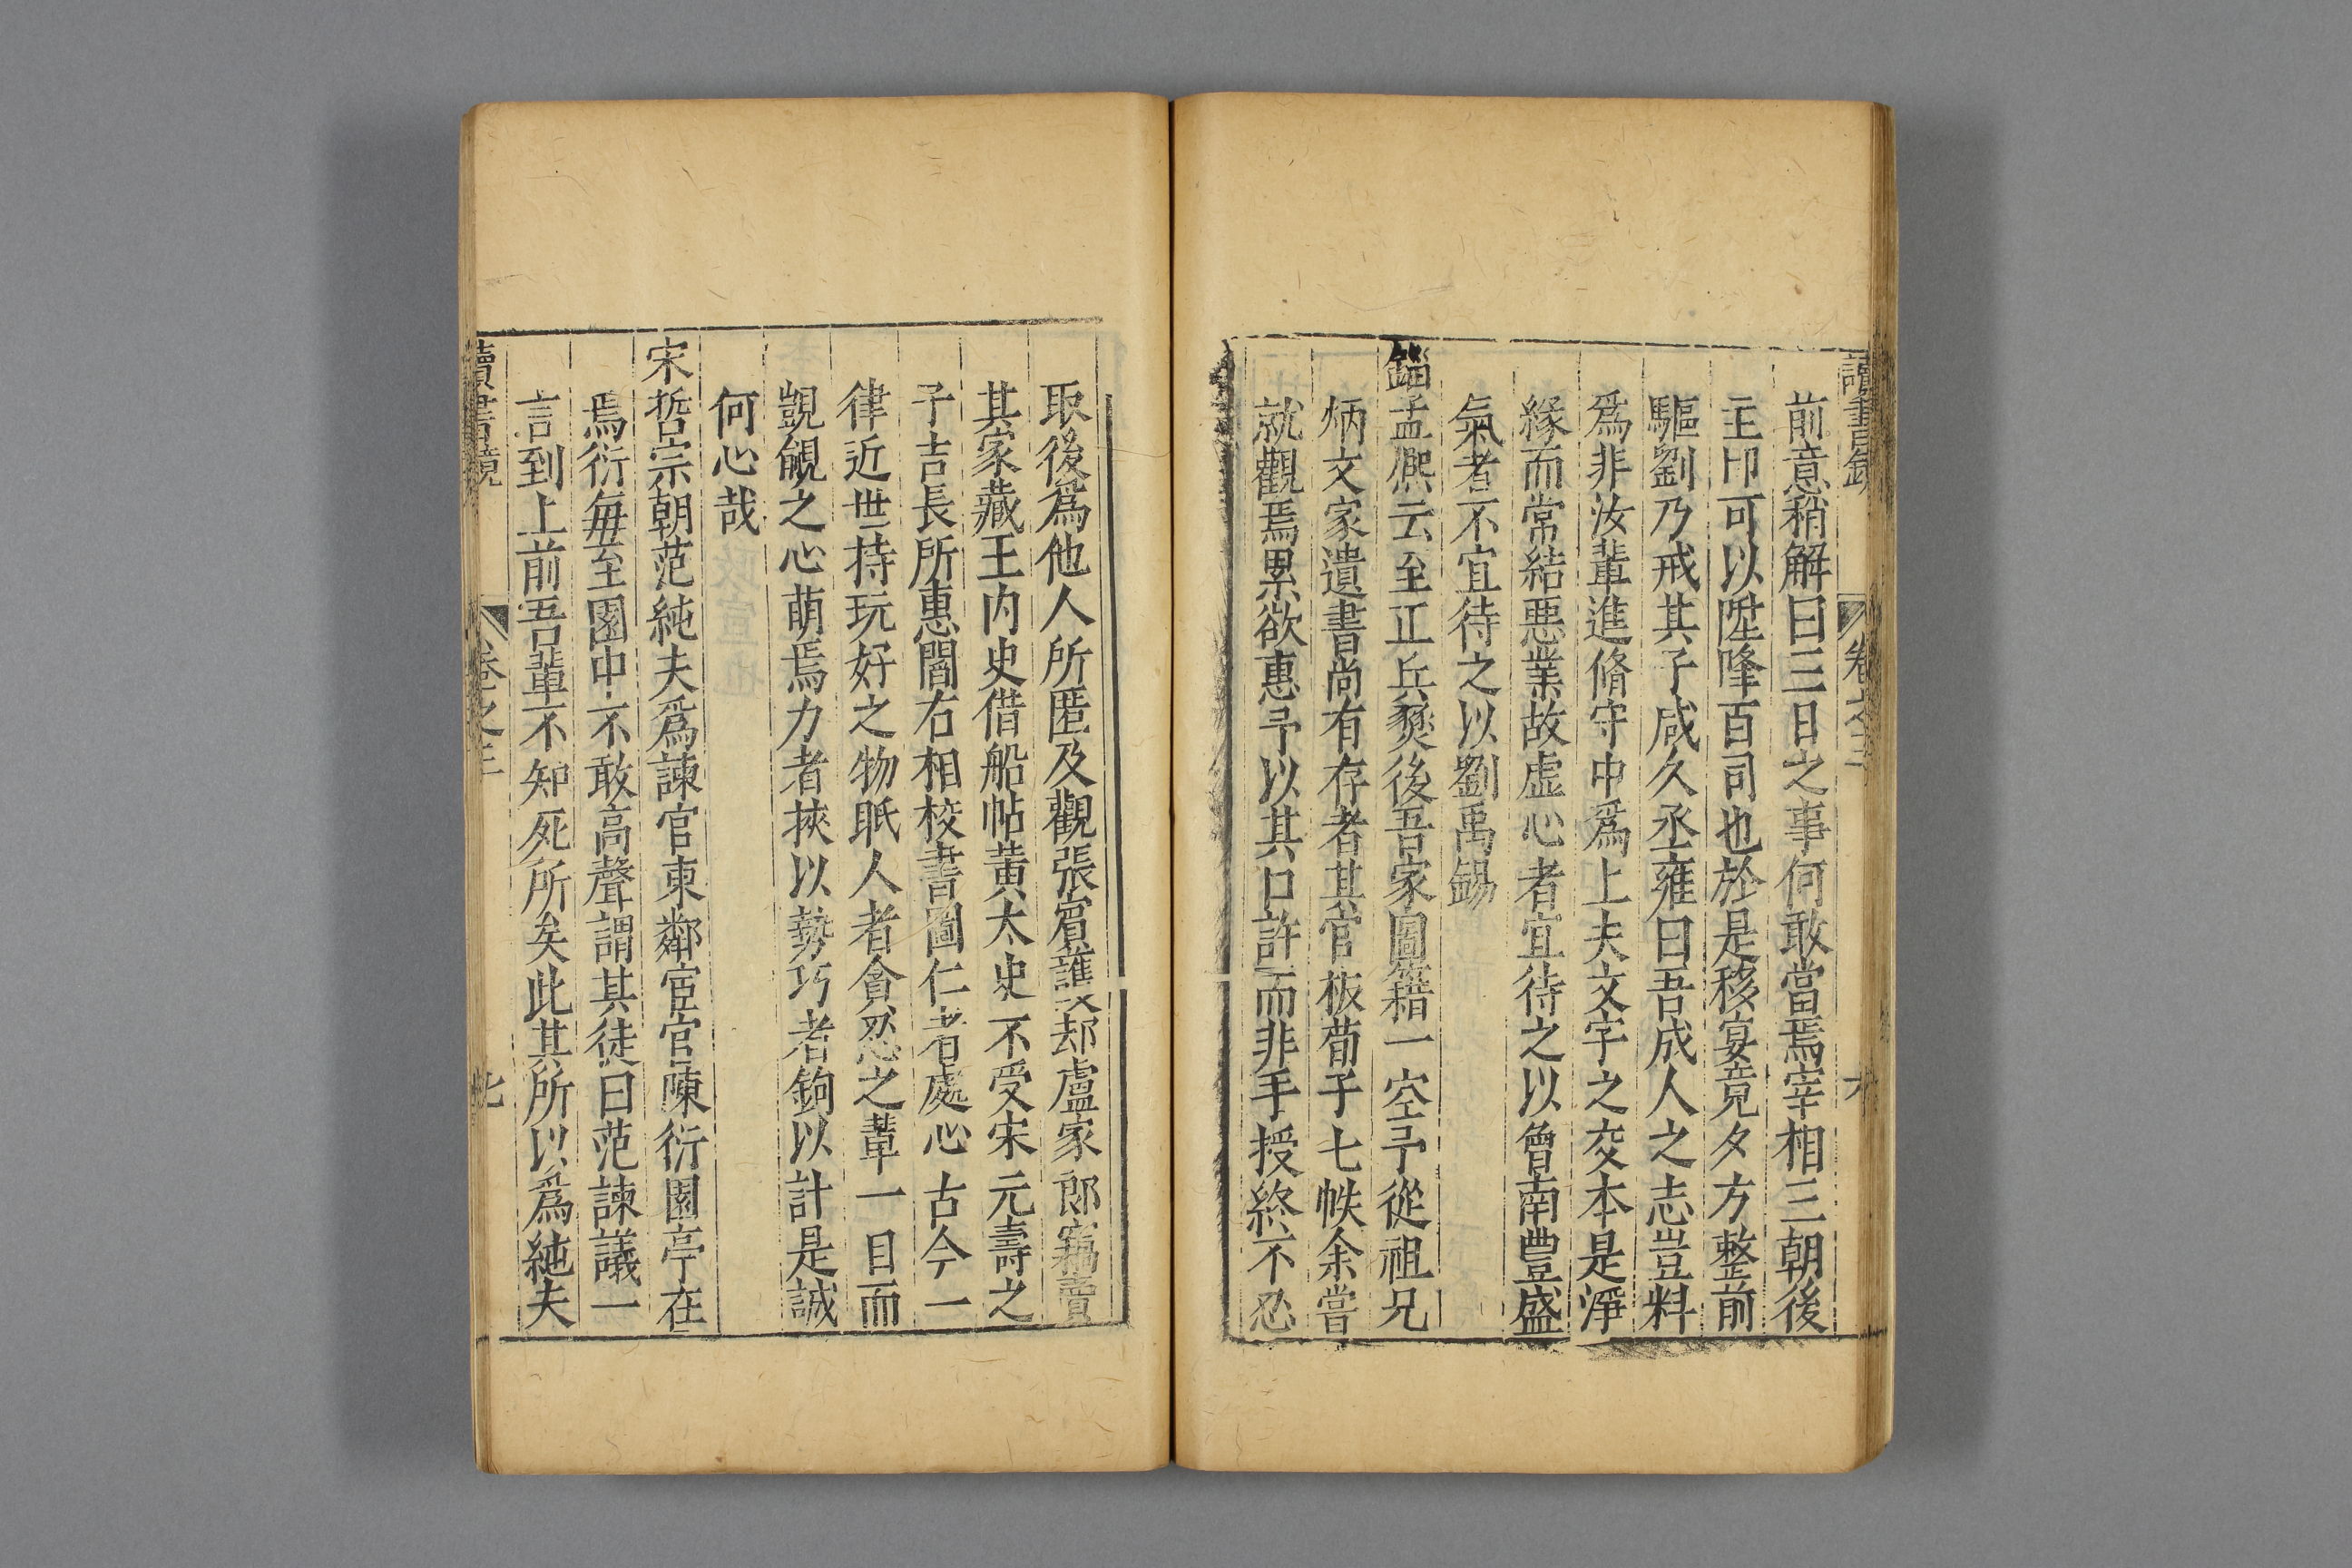 讀書鏡 卷之三 六
前意稍解曰三日之事何敢當焉宰相三朝後
主印可以陞降百司也於是移宴竟夕方整前
驅劉乃戒其子咸久丞雍曰吾成人之志豈料
爲非汝輩進脩守中爲上夫文字之交本是淨
緣而常結惡業故虛心者宜待之以曾南豐盛
氣者不宜待之以劉禹錫
錙孟熈云至正兵燹後吾家圖籍一空予從祖兄
炳文家遺書尚有存者其官板荀子七帙余嘗
就觀焉累欲惠予以其口許而非手授終不忍
取後爲他人所匿及觀張賓護文却盧家郎竊賣
其家藏王内史借船帖黄太史不受宋元壽之
子吉長所惠閻右相校書圖仁者處心古今一
律近世持玩好之物眂人者貪忍之輩一目而
覬覦之心萌焉力者挾以勢巧者鉤以計是誠
何心哉
宋哲宗朝范純夫爲諫官東鄰宦官陳衍園亭在
焉衍每至園中不敢高聲謂其徒曰范諫議一
言到上前吾輩不知死所矣此其所以爲純夫
讀書鏡 卷之三 七